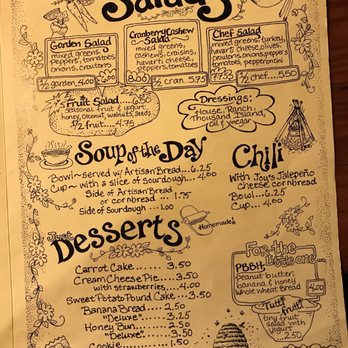 Salads
Garden Salad
mixed greens,
peppers, tomatoes,
onions, croutons
1/2 garden 4.00
Cranberry Cashew
Salad
mixed greens,
cashews, craisins,
havarti cheese,
peppers, tomatoes
8.00 1/2 cran. 5.75
Chef Salad
mixed greens, turkey,
havarti cheese, olives,
croutons, onions, peppers,
tomatoes, pepperoncini
7.75 1/2 chef.....5.50
Fruit Salad.....6.50
seasonal fruit & yogurt,
honey, coconut, walnuts, seeds
1/2 fruit ... 4.75
Dressings:
House, Ranch,
Thousand Island,
oil & vinegar
Soup of the Day
Bowl~served w/ Artisan Bread...6.25
Cup~with a slice of Sourdough...4.00
Side of Artisan Bread
or cornbread ... 1.75
Side of Sourdough ...1.00
Chili
With Joy's Jalapeño
cheese cornbread
Bowl...6.25
Cup...4.00
Homemade!
Desserts
Carrot Cake.......3.50
Cream Cheese Pie....3.50
with strawberries....4.00
Sweet Potato Pound Cake...3.50
Banana Bread........2.50
"Deluxe"...3.25
Honey Bun.........2.50
"Deluxe"...3.50
Cookie............1.50
For the
Little one...
PBBH:
Peanut butter,
banana & honey
whole wheat bread 4.00
Tutti
Fruiti
tiny fruit
salad with
yogurt